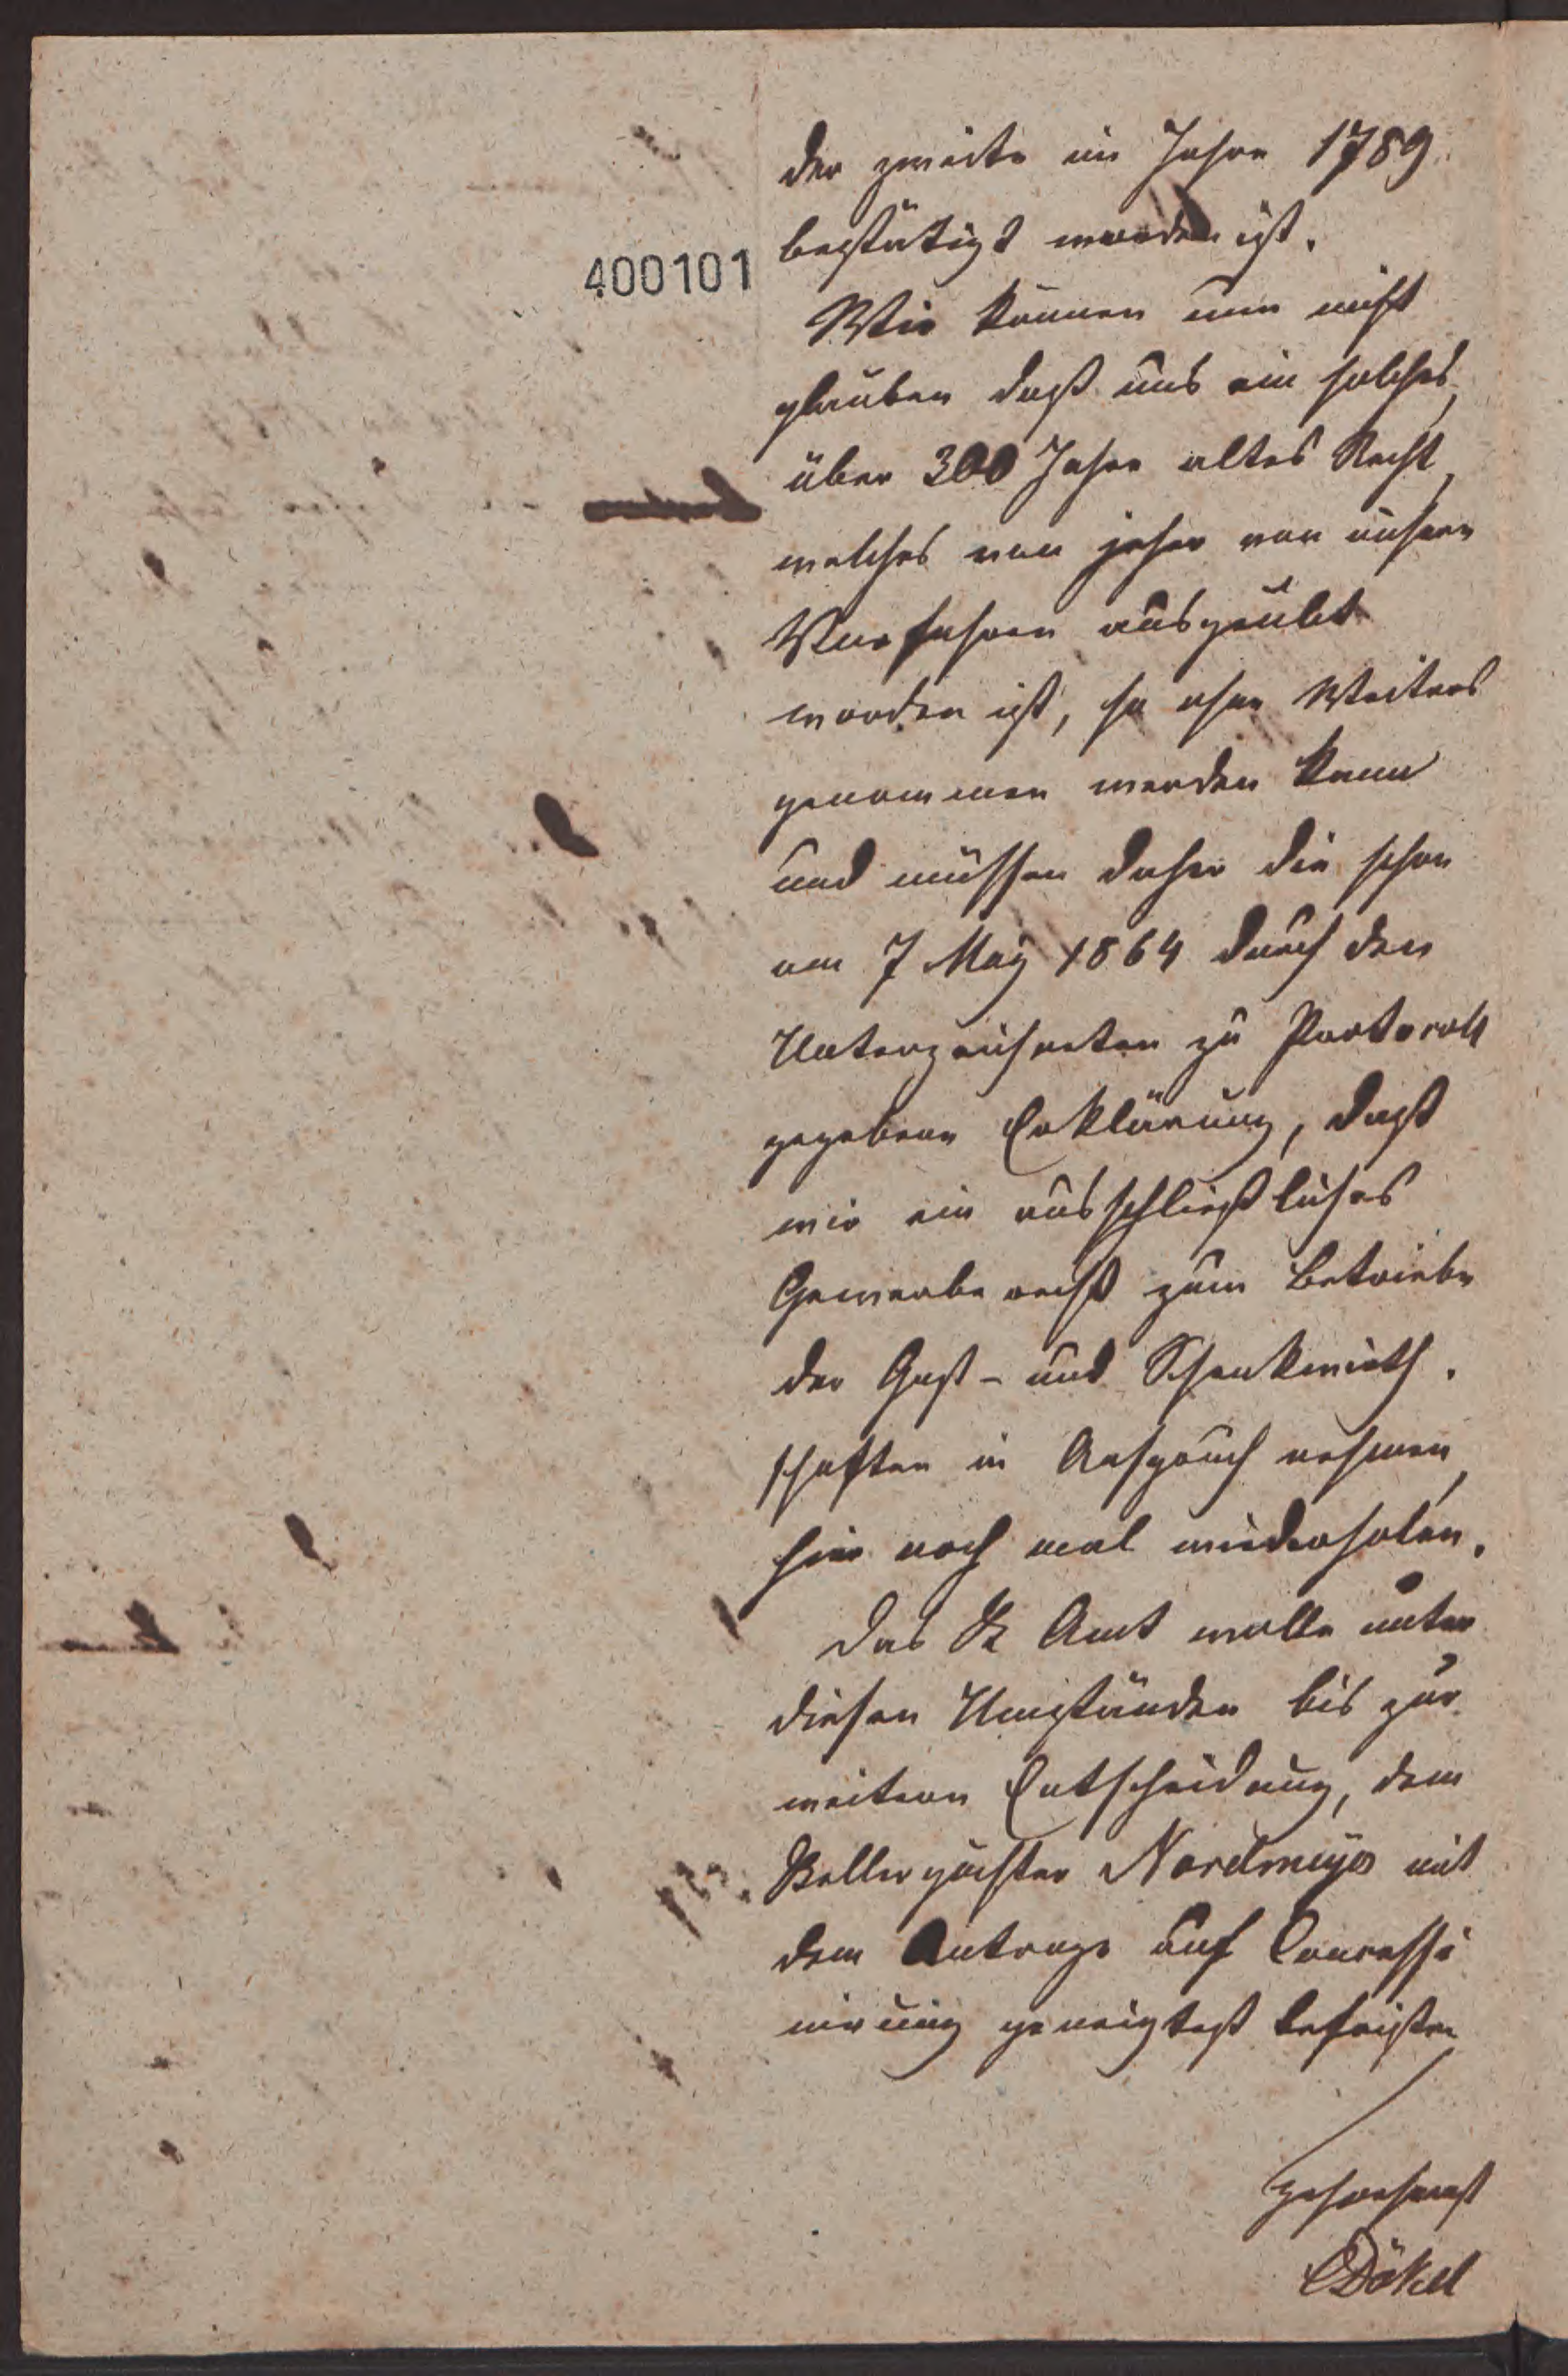 400101
der zweite im Jahre 1789
bestätigt worden ist.
Wir können nun nicht
glauben daß uns ein solches,
über 300 Jahre altes Recht,
welches von jeher von unsern
Vorfahren ausgeübt
worden ist, so ohne Weiteres
genommen werden kann
und müssen daher die schon
am 7 May 1864 durch den
Unterzeichneten zu Protocoll
gegebene Erklärung, daß
wir ein ausschließliches
Gewerberecht zum Betriebe
der Gast- und Schenkwirth.
schaften in Anspruch nehmen,
hier noch mal wiederholen.
Das K Amt wolle unter
diesen Umständen bis zur
weitern Entscheidung, dem
Kellerpächter Nordmeyer mit
dem Antrage auf Concessi
nirung geneigtest befristen
gehorsamst
Dökel